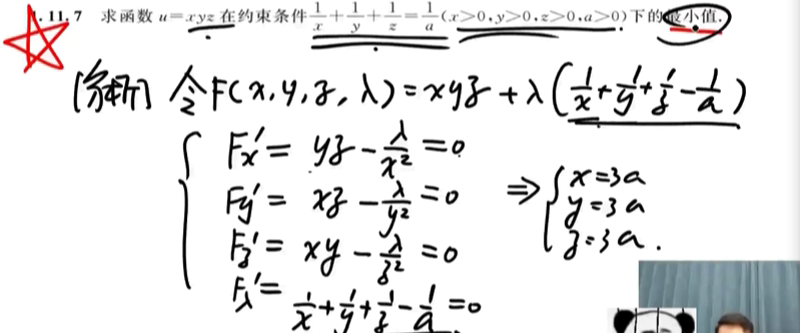 .11.7 求函数 u=xyz 在约束条件 1/x+1/y+1/z=1/a (x>0,y>0,z>0,a>0)下的最小值.
[分析] 令F(x,y,z,λ)=xyz+λ(1/x+1/y+1/z-1/a)
Fx'=yz-λ/x²=0
Fy'=xz-λ/y²=0
Fz'=xy-λ/z²=0
Fλ'=1/x+1/y+1/z-1/a=0
⇒{x=3a
y=3a
z=3a.